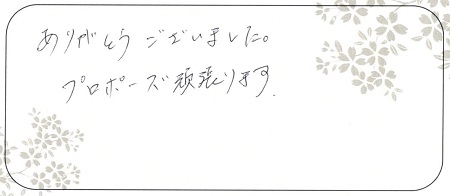 ありがとうございました。
プロポーズ頑張ります.